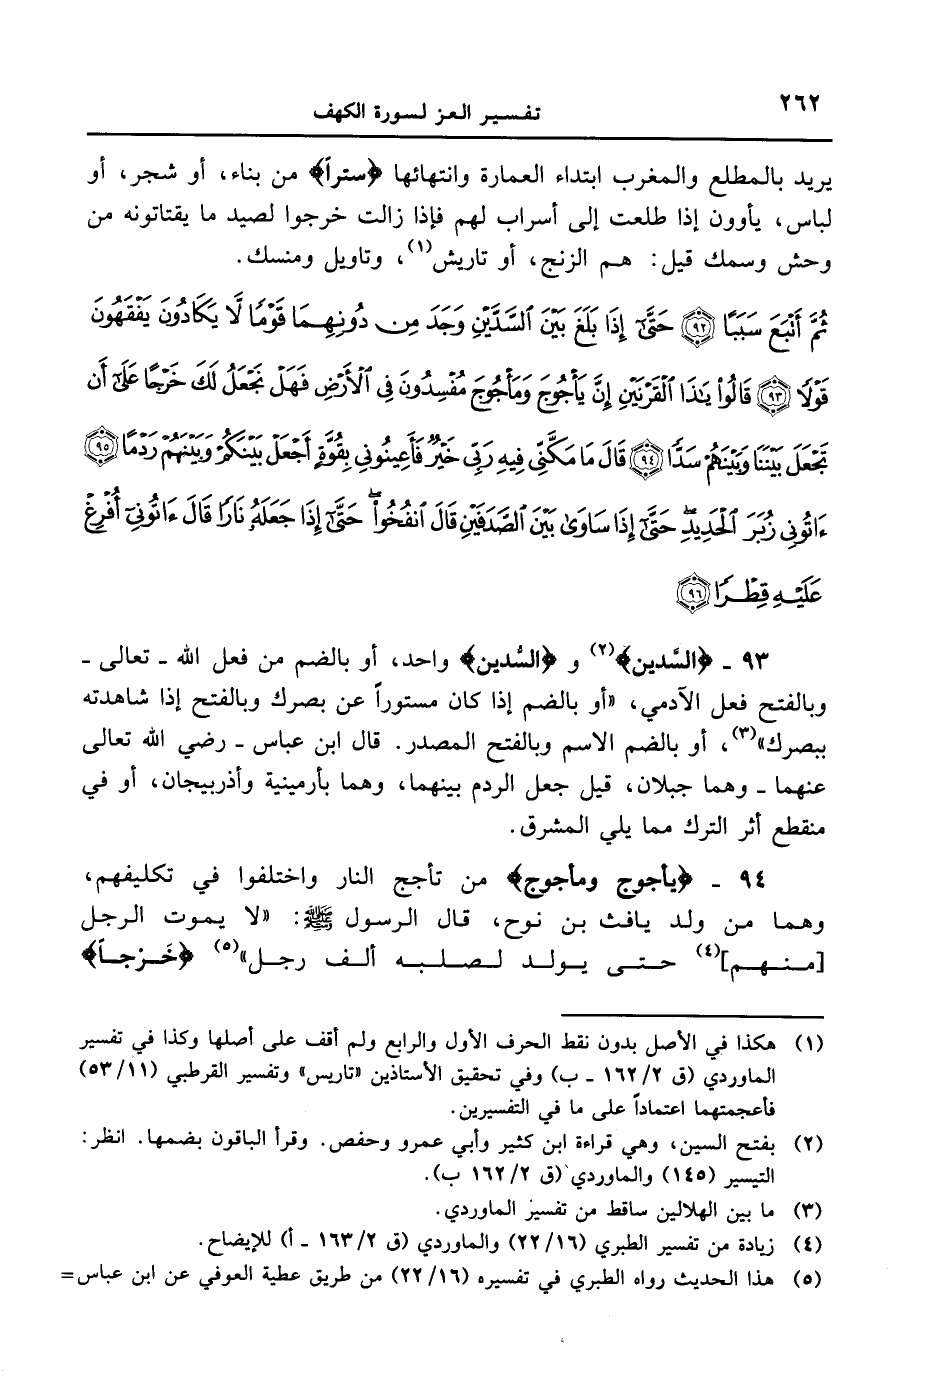 ٢٦٢
تفسير العز لسورة الكهف
يريد بالمطلع والمغرب ابتداء العمارة وانتهائها ﴿ستراً﴾ من بناء، أو شجر، أو
لباس، يأوون إذا طلعت إلى أسراب لهم فإذا زالت خرجوا لصيد ما يقتاتونه من
وحش وسمك قيل: هم الزنج، أو تاريش(١)، وتاويل ومنسك.
ثُمَّ أَتْبَعَ سَبَبًا ﴿٩٢﴾ حَتَّىٰٓ إِذَا بَلَغَ بَيْنَ ٱلسَّدَّيْنِ وَجَدَ مِن دُونِهِمَا قَوْمًا لَّا يَكَادُونَ يَفْقَهُونَ
قَوْلًا ﴿٩٣﴾ قَالُوا۟ يَـٰذَا ٱلْقَرْنَيْنِ إِنَّ يَأْجُوجَ وَمَأْجُوجَ مُفْسِدُونَ فِى ٱلْأَرْضِ فَهَلْ نَجْعَلُ لَكَ خَرْجًا عَلَىٰٓ أَن
تَجْعَلَ بَيْنَنَا وَبَيْنَهُمْ سَدًّا ﴿٩٤﴾ قَالَ مَا مَكَّنِّى فِيهِ رَبِّى خَيْرٌ فَأَعِينُونِى بِقُوَّةٍ أَجْعَلْ بَيْنَكُمْ وَبَيْنَهُمْ رَدْمًا ﴿٩٥﴾
ءَاتُونِى زُبَرَ ٱلْحَدِيدِ ۖ حَتَّىٰٓ إِذَا سَاوَىٰ بَيْنَ ٱلصَّدَفَيْنِ قَالَ ٱنفُخُوا۟ ۖ حَتَّىٰٓ إِذَا جَعَلَهُۥ نَارًا قَالَ ءَاتُونِىٓ أُفْرِغْ
عَلَيْهِ قِطْرًا ﴿٩٦﴾
٩٣ ـ ﴿السَّدين﴾(٢) و ﴿السُّدين﴾ واحد، أو بالضم من فعل الله ـ تعالى ـ
وبالفتح فعل الآدمي، «أو بالضم إذا كان مستوراً عن بصرك وبالفتح إذا شاهدته
ببصرك»(٣)، أو بالضم الاسم وبالفتح المصدر. قال ابن عباس ـ رضي الله تعالى
عنهما ـ وهما جبلان، قيل جعل الردم بينهما، وهما بأرمينية وأذربيجان، أو في
منقطع أثر الترك مما يلي المشرق.
٩٤ ـ ﴿يأجوج ومأجوج﴾ من تأجج النار واختلفوا في تكليفهم،
وهما من ولد يافث بن نوح، قال الرسول ﷺ: «لا يموت الرجل
[منهم](٤) حتى يولد لصلبه ألف رجل»(٥) ﴿خَرْجاً﴾
(١) هكذا في الأصل بدون نقط الحرف الأول والرابع ولم أقف على أصلها وكذا في تفسير
الماوردي (ق ١٦٢/٢ ـ ب) وفي تحقيق الأستاذين «تاريس» وتفسير القرطبي (٥٣/١١)
فأعجمتهما اعتماداً على ما في التفسيرين.
(٢) بفتح السين، وهي قراءة ابن كثير وأبي عمرو وحفص. وقرأ الباقون بضمها. انظر:
التيسير (١٤٥) والماوردي (ق ١٦٢/٢ ب).
(٣) ما بين الهلالين ساقط من تفسير الماوردي.
(٤) زيادة من تفسير الطبري (٢٢/١٦) والماوردي (ق ١٦٣/٢ ـ أ) للإيضاح.
(٥) هذا الحديث رواه الطبري في تفسيره (٢٢/١٦) من طريق عطية العوفي عن ابن عباس=